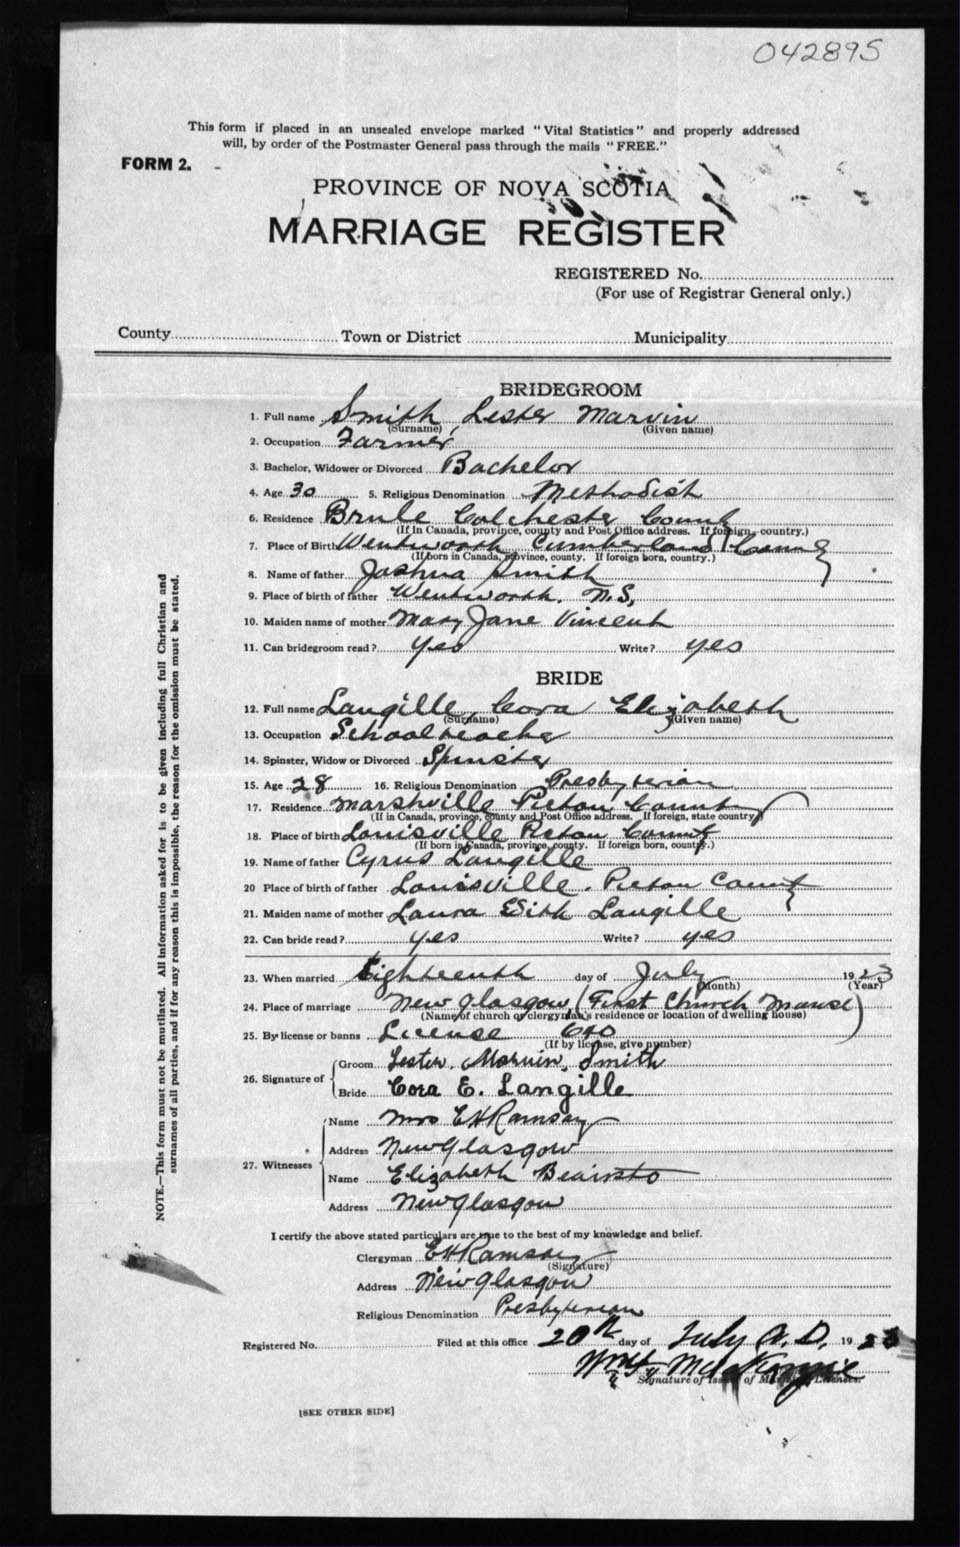 042895
This form if placed in an unsealed envelope marked "Vital Statistics" and properly addressed
will, by order of the Postmaster General pass through the mails "FREE."
FORM 2.
PROVINCE OF NOVA SCOTIA
MARRIAGE REGISTER
REGISTERED No.
(For use of Registrar General only.)
County Town or District Municipality
BRIDEGROOM
1. Full name Smith Lester Marvin
(Surname) (Given name)
2. Occupation Farmer
3. Bachelor, Widower or Divorced Bachelor
4. Age 30 5. Religious Denomination Methodist
6. Residence Brule Colchester County
(If in Canada, province, county and Post Office address. If foreign, country.)
7. Place of Birth Wentworth Cumberland County
(If born in Canada, province, county. If foreign born, country.)
8. Name of father Joshua Smith
9. Place of birth of father Wentworth. N.S,
10. Maiden name of mother Mary Jane Vincent
11. Can bridegroom read? yes Write? yes
BRIDE
12. Full name Langille, Cora Elizabeth
(Surname) (Given name)
13. Occupation Schoolteacher
14. Spinster, Widow or Divorced Spinster
15. Age 28 16. Religious Denomination Presbyterian
17. Residence Marshville Pictou County
(If in Canada, province, county and Post Office address. If foreign, state country)
18. Place of birth Louisville Pictou County
(If born in Canada, province, county. If foreign born, country.)
19. Name of father Cyrus Langille
20 Place of birth of father Louisville. Pictou County
21. Maiden name of mother Laura Edith Langille
22. Can bride read? yes Write? yes
23. When married Eighteenth day of July 1923
(Month) (Year)
24. Place of marriage New Glasgow (First Church Manse)
(Name of church or clergyman's residence or location of dwelling house)
25. By license or banns License
(If by license, give number)
26. Signature of
Groom Lester Marvin Smith
Bride Cora E. Langille
27. Witnesses
Name Mrs E H Ramsay
Address New Glasgow
Name Elizabeth Beairsto
Address New Glasgow
I certify the above stated particulars are true to the best of my knowledge and belief.
Clergyman E H Ramsay
(Signature)
Address New Glasgow
Religious Denomination Presbyterian
Registered No. Filed at this office 20th day of July A.D. 1923
McKenzie
Signature of Issuer of Marriage Licenses.
[SEE OTHER SIDE]
NOTE.—This form must not be mutilated. All information asked for is to be given including full Christian and
surnames of all parties, and if for any reason this is impossible, the reason for the omission must be stated.